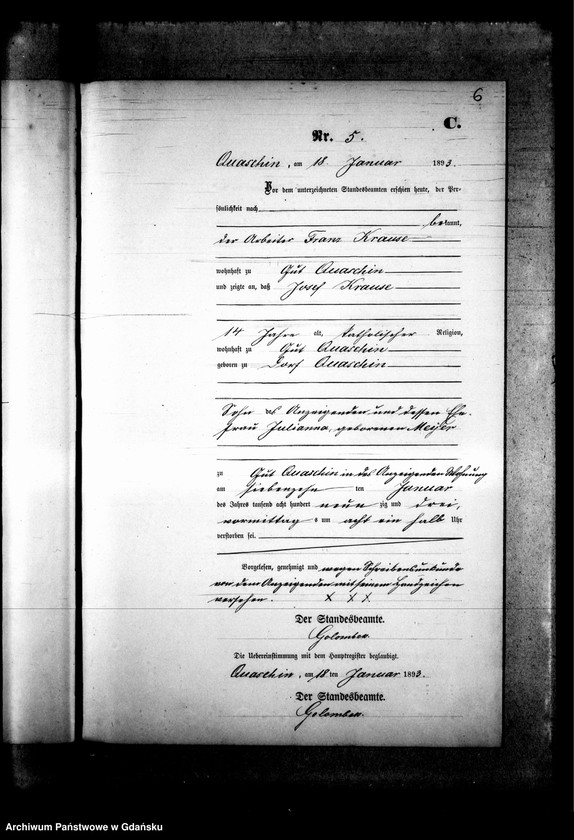 6
C.
Nr. 5.
Quaschin, am 18 Januar 1893.
Vor dem unterzeichneten Standesbeamten erschien heute, der Per-
sönlichkeit nach
bekannt,
der Arbeiter Franz Krause
wohnhaft zu Gut Quaschin
und zeigte an, daß Josef Krause
14 Jahre alt, katholischer Religion,
wohnhaft zu Gut Quaschin
geboren zu Dorf Quaschin
Sohn des Anzeigenden und dessen Ehe-
frau Julianna, geborenen
zu Gut Quaschin in des Anzeigenden Wohnung
am siebenzehn ten Januar
des Jahres tausend acht hundert neun zig und drei,
vormittags um acht ein halb Uhr
verstorben sei.
Vorgelesen, genehmigt und wegen Schreibensunkunde
von dem Anzeigenden mit seinem Handzeichen
versehen. X X X
Der Standesbeamte.
Golombek.
Die Uebereinstimmung mit dem Hauptregister beglaubigt.
Quaschin, am 18 ten Januar 1893.
Der Standesbeamte.
Golombek.
Archiwum Państwowe w Gdańsku